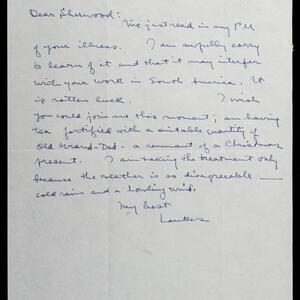 Dear Sherwood:
I've just read in my PM
of your illness. I am awfully sorry
to learn of it and that it may interfer
with your work in South America. It
is rotten luck. I wish
you could join me this moment; am having
tea fortified with a suitable quantity of
Old Grand-Dad - a remnant of a Christmas
present. I am taking the treatment only
because the weather is so disagreeable —
cold rain and a howling wind.
My best
Lankes